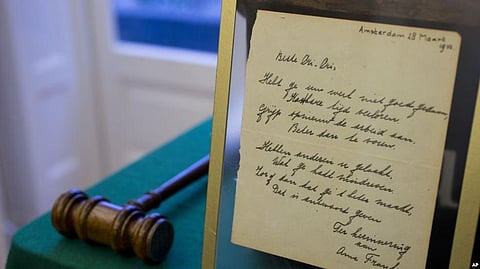 Amsterdam 28 Maart
1942
Beste Cri-Cri,
Hebt ge uw werk niet goed gedaan,
Kostbare tijd verloren
Grijp opnieuw de arbeid aan,
Beter dan te voren.
Hebben anderen u gelaakt,
Wat ge hebt misdreven,
Zorg dan dat ge 't beter maakt,
Dat is antwoord geven
Ter herinnering
aan
Anne Frank
AP